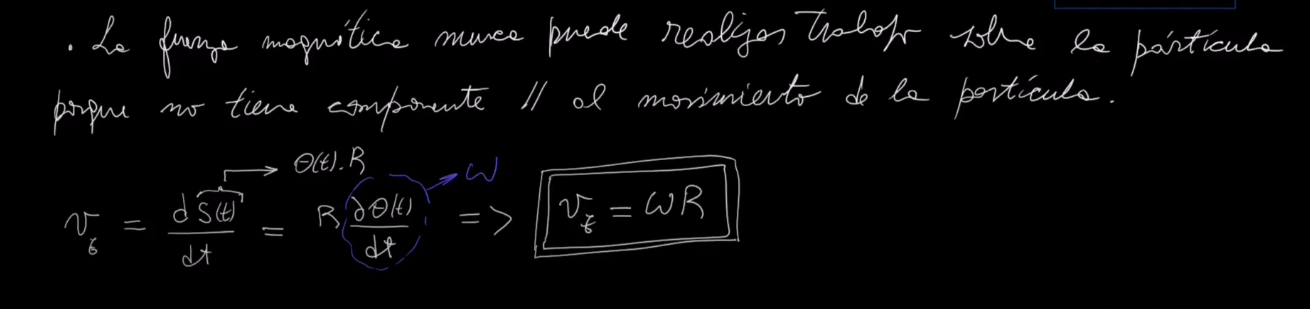 . La fuerza magnética nunca puede realizar trabajo sobre la partícula
porque no tiene componente // al movimiento de la partícula.
θ(t).R
ω
v_t = dS(t)/dt = R ∂θ(t)/dt => v_t = ωR